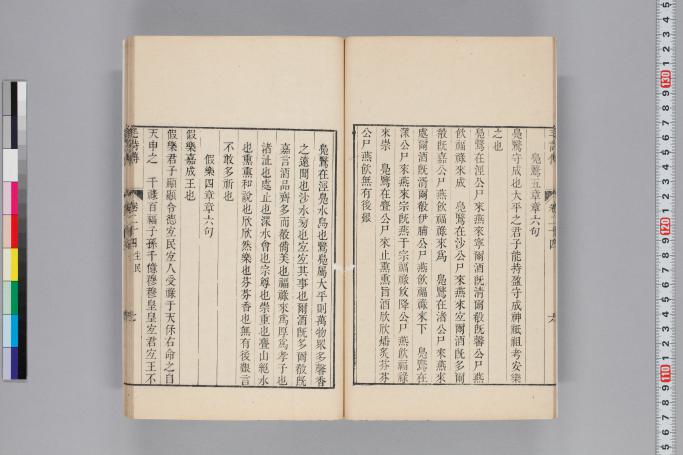 鳧鷖五章章六句
鳧鷖守成也大平之君子能持盈守成神祗祖考安樂
之也
鳧鷖在涇公尸來燕來寧爾酒旣清爾殽旣馨公尸燕
飲福祿來成　鳧鷖在沙公尸來燕來宜爾酒旣多爾
殽旣嘉公尸燕飲福祿來爲　鳧鷖在渚公尸來燕來
處爾酒旣湑爾殽伊脯公尸燕飲福祿來下　鳧鷖在
潀公尸來燕來宗旣燕于宗福祿攸降公尸燕飲福祿
來崇　鳧鷖在亹公尸來止熏熏旨酒欣欣燔炙芬芬
公尸燕飲無有後艱
鳧鷖在涇鳧水鳥也鷖鳧屬大平則萬物衆多馨香
之遠聞也沙水旁也宜宜其事也爾酒旣多爾殽旣
嘉言酒品齊多而殽備美也福祿來爲厚爲孝子也
渚沚也處止也潀水會也宗尊也崇重也亹山絕水
也熏熏和說也欣欣然樂也芬芬香也無有後艱言
不敢多祈也
假樂四章章六句
假樂嘉成王也
假樂君子顯顯令德宜民宜人受祿于天保右命之自
天申之　千祿百福子孫千億穆穆皇皇宜君宜王不
毛詩傳
卷二十四
生民